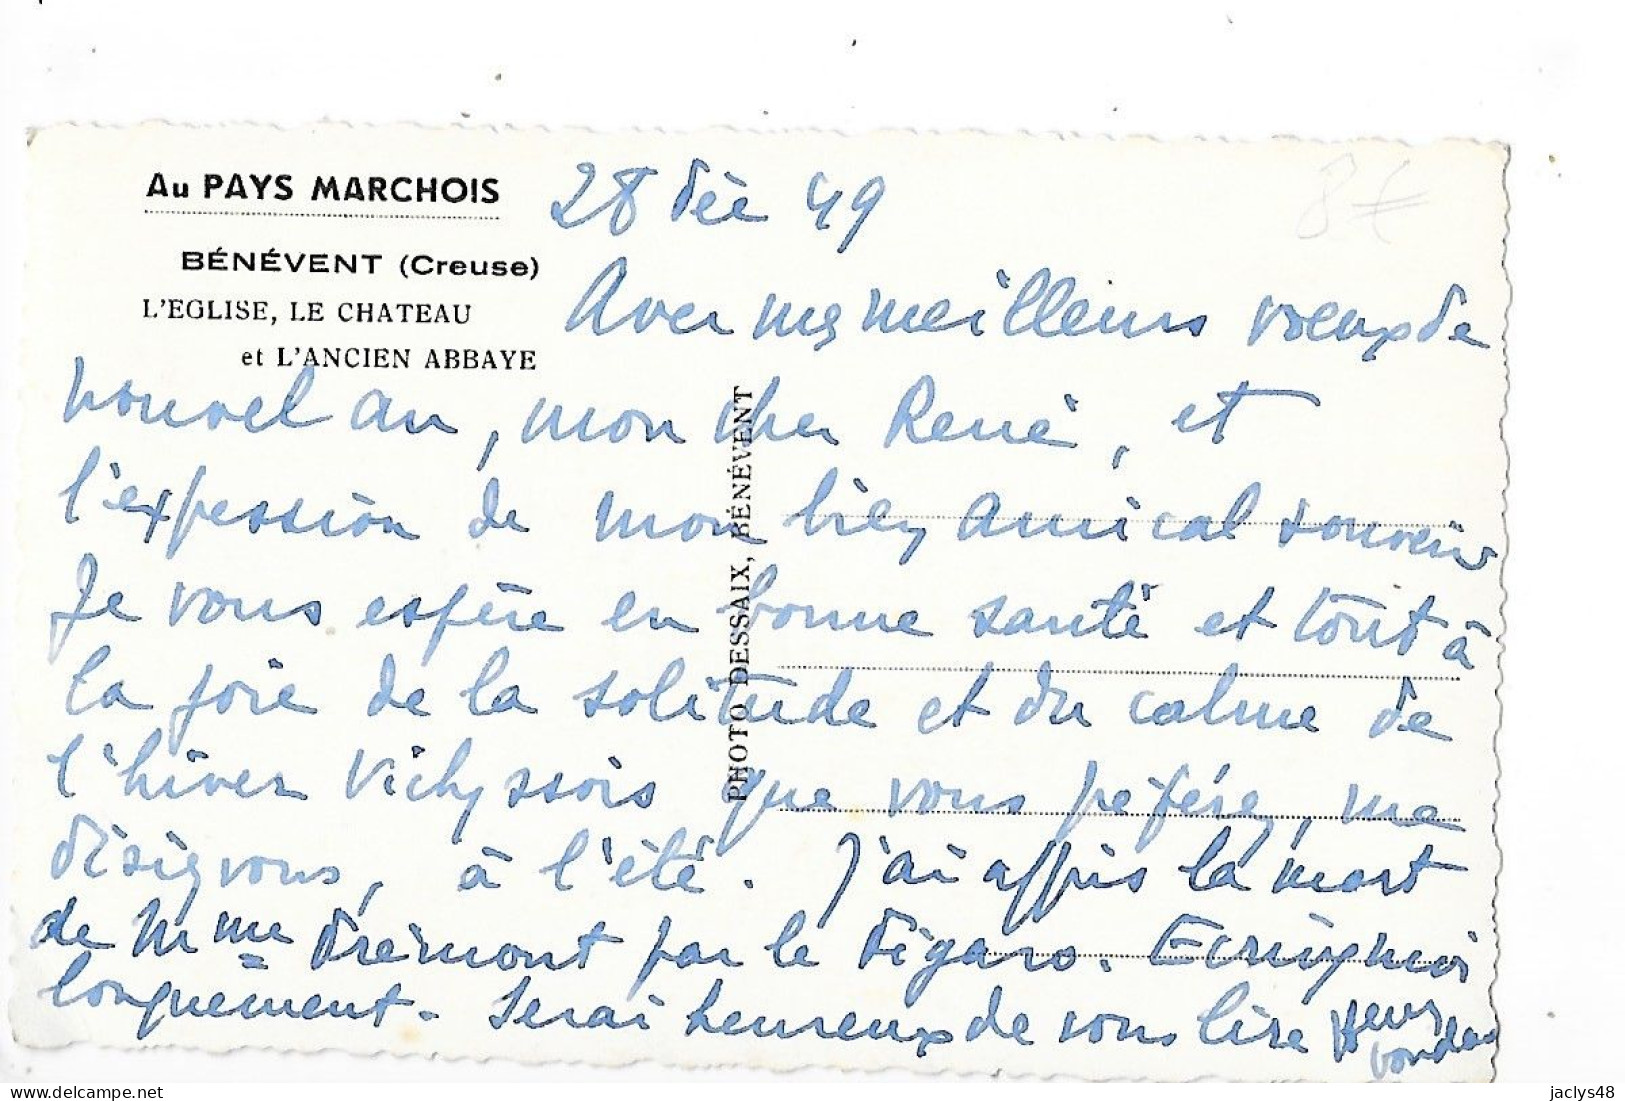 Au PAYS MARCHOIS
BÉNÉVENT (Creuse)
L'EGLISE, LE CHATEAU
et L'ANCIEN ABBAYE
28 déc 49
8€
Avec mes meilleurs voeux de
nouvel an, mon cher René, et
l'expession de mon bien amical souvenir
Je vous espère en bonne santé et tout à
la joie de la solitude et du calme de
l'hiver Vichyssois que vous péférez, me
disiez vous, à l'été. J'ai appris la mort
de Mme Drémont par le Figaro. Ecrivez moi
longuement - Serai heureux de vous lire
PHOTO DESSAIX, BÉNÉVENT
delcampe.net
jaclys48